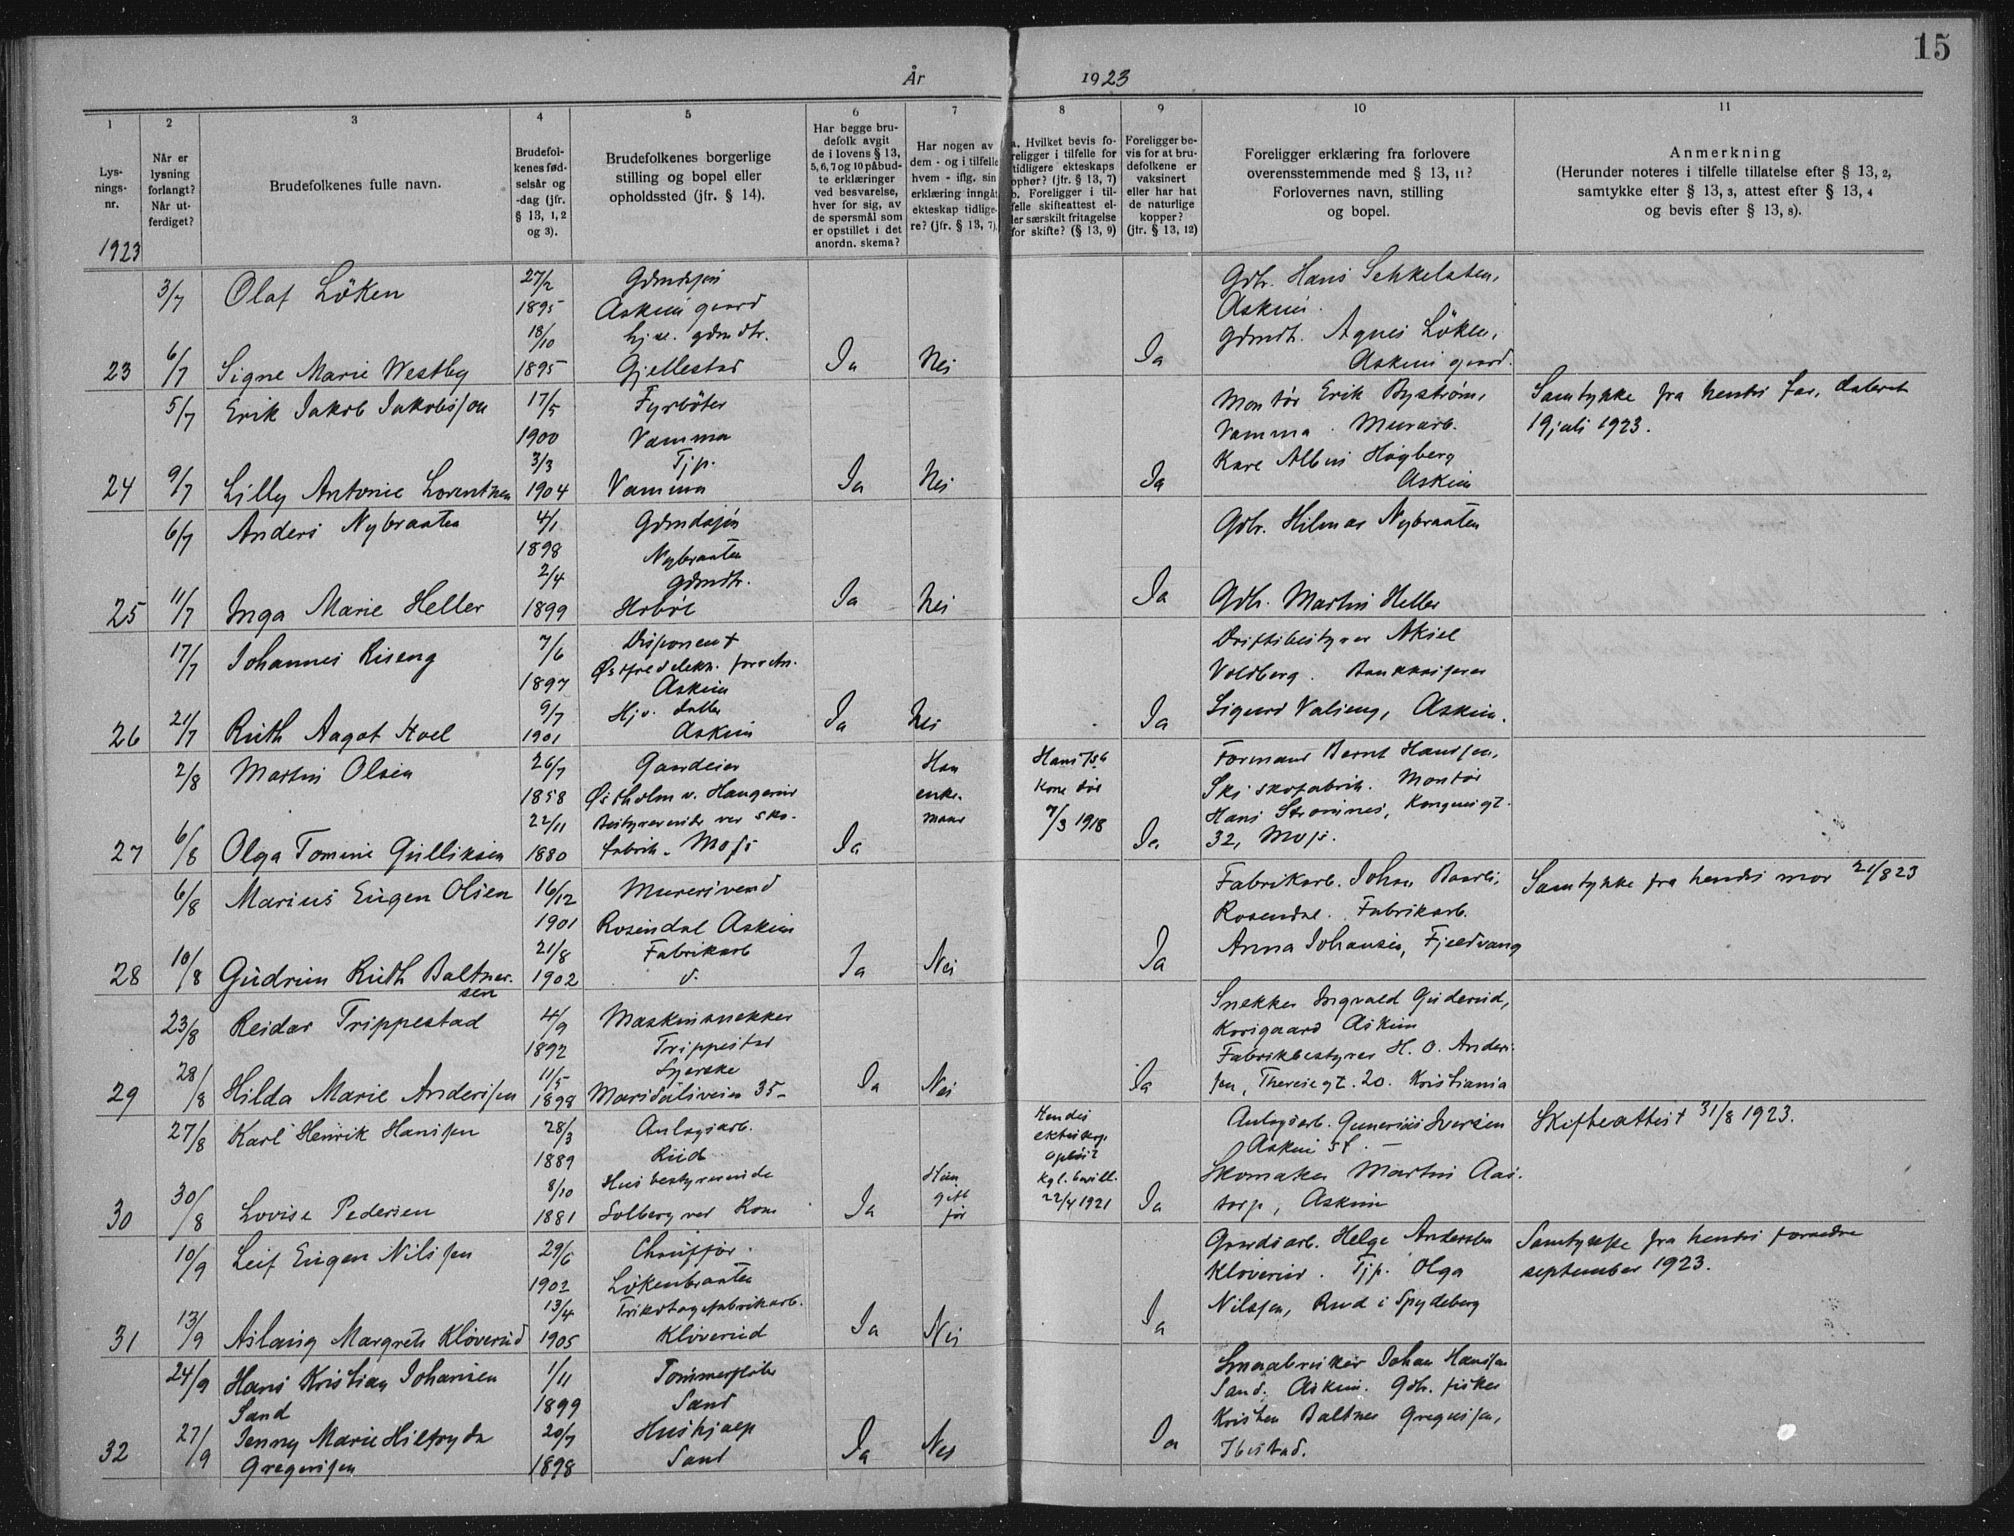 15
År 1923
1 2 3 4 5 6 7 8 9 10 11
Lysningsnr.
Når er lysning forlangt? Når utferdiget?
Brudefolkenes fulle navn.
Brudefolkenes fødselsår og -dag (jfr. § 13, 1, 2 og 3).
Brudefolkenes borgerlige stilling og bopel eller opholdssted (jfr. § 14).
Har begge brudefolk avgit de i lovens § 13, 5, 6, 7 og 10 påbudte erklæringer ved besvarelse, hver for sig, av de spørsmål som er opstillet i det anordn. skema?
Har nogen av dem - og i tilfelle hvem - iflg. sin erklæring inngåt ekteskap tidligere? (jfr. § 13, 7).
a. Hvilket bevis foreligger i tilfelle for tidligere ekteskaps ophør? (jfr. § 13, 7) b. Foreligger i tilfelle skifteattest eller særskilt fritagelse for skifte? (§ 13, 9)
Foreligger bevis for at brudefolkene er vaksinert eller har hat de naturlige kopper? (jfr. § 13, 12)
Foreligger erklæring fra forlovere overensstemmende med § 13, 11? Forlovernes navn, stilling og bopel.
Anmerkning (Herunder noteres i tilfelle tillatelse efter § 13, 2, samtykke efter § 13, 3, attest efter § 13, 4 og bevis efter § 13, 8).
1923
3/7 Olaf Löken 27/2 1895 Gdmdsjön Askim gaard Gdbr. Hans Askim.
23 6/7 Signe Marie Westby 18/10 1895 hjv. gdmdtr. Gjellestad Ja Nei Ja Gdmdt. Agnes Löken, Askim gaard.
5/7 Erik Jakob Jakobsson 17/5 1900 Fyrböter Vamma Montör Erik Byström, Vamma. Murarb. Samtykke fra hendes far, dateret 19 juli 1923.
24 9/7 Lilly Antonie Lorentzen 3/3 1904 Tjp. Vamma Ja Nei Ja Karl Albin Högberg Askim
6/7 Anders Nybraaten 4/1 1898 Gdmdsjön Nybraaten Gdbr. Hilmar Nybraaten
25 11/7 Inga Marie Heller 2/4 1899 Gdmdtr. Hobøl Ja Nei Ja Gdbr. Martin Heller
17/7 Johannes Riseng 7/6 1897 Disponent Østfred elekn. forretn. Askim Driftsbestyrer Aksel Voldberg. Bankkasserer
26 21/7 Ruth Aagot Hoel 9/7 1901 Hjv. datter Askim Ja Nei Ja Sigurd Valseng, Askim.
2/8 Martin Olsen 26/7 1858 Gaardeier Østholm v. Haugerud Han enkemand Hans kone död 7/3 1918 Formand Bernt Hanssen, Ski skofabrik. Montör
27 6/8 Olga Tomine Gulliksen 22/11 1880 Bestyrerinde ved skofabrik. Moss Ja Ja Hans Strömnes, Kongensgt. 32, Moss.
6/8 Marius Eugen Olsen 16/12 1901 Murersvend Rosendal Askim Fabrikarb. Johan Baarli, Rosendal. Fabrikarb. Samtykke fra hendes mor 21/8 23
28 10/8 Gudrun Ruth Baltnersen 21/8 1902 Fabrikarb d. Ja Nei Ja Anna Johansen, Fjeldvang
23/8 Reidar Trippestad 4/9 1892 Maskinsnekker Trippestad Snekker Ingvald Guderud, Korsgaard Askim
29 28/8 Hilda Marie Anderssen 11/5 1898 Syerske Maridalsveien 35 Ja Nei Ja Fabrikbestyrer H. O. Anderssen, Theresegt. 20. Kristiania
27/8 Karl Henrik Hanssen 28/3 1889 Anlagsarb. Rud Hendes ekteskap oplöst Kgl. bevill. 22/4 1921 Anlagsarb. Gunerius Iversen Askim st. Skifteattest 31/8 1923.
30 30/8 Lovise Pedersen 8/10 1881 Husbestyrerinde Solberg ved Kom Ja Hun gift för Ja Skomaker Martin Aastorp, Askim
10/9 Leif Eugen Nilssen 29/6 1902 Chauffør. Løkenbraaten Gaardsarb. Helge Andersen Kløverud. Tjp. Olga Samtykke fra hendes foraeldre september 1923.
31 13/9 Aslaug Margrete Kløverud 13/4 1905 Trikotagefabrikarb. Kløverud Ja Nei Ja Nilssen, Rud i Spydeberg
24/9 Hans Kristian Johansen Sand 1/11 1899 Tømmerfløter Sand Smaabruker Johan Hanssen Sand, Askim. Gdbr. fisker
32 27/9 Jenny Marie Hilfryda Gregerssen 20/7 1898 Hushjælp Sand Ja Nei Ja Kristen Baltner Gregerssen, Ibestad.